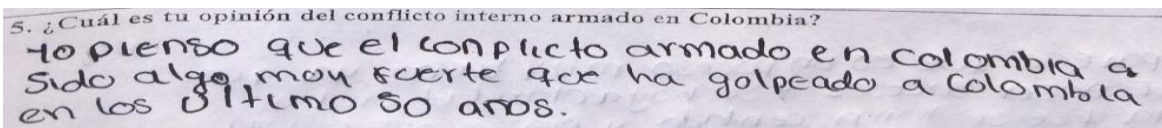 5. ¿Cuál es tu opinión del conflicto interno armado en Colombia?
Yo pienso que el conplicto armado en colombia a
sido algo moy fuerte que ha golpeado a Colombia
en los último 50 anos.